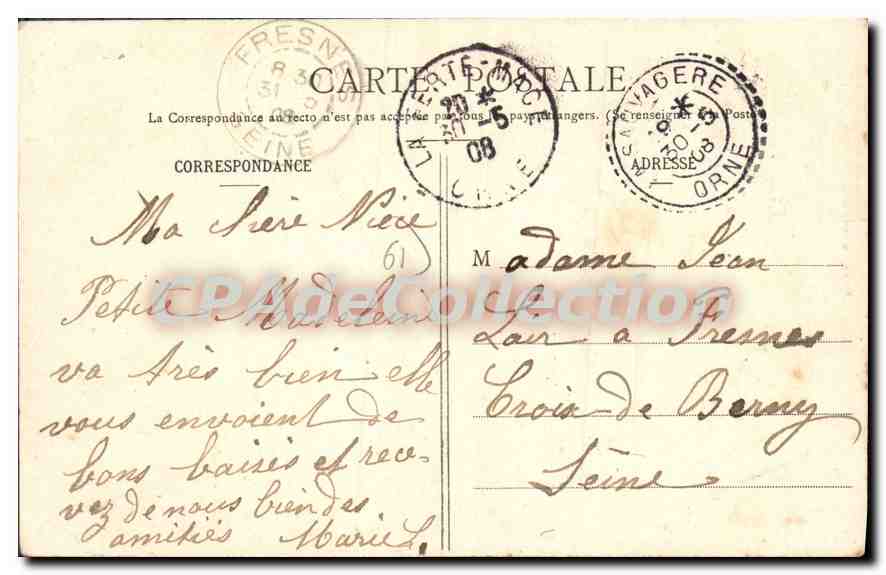 CARTE POSTALE
La Correspondance au recto n'est pas acceptée par tous les pays étrangers. (Se renseigner à la Poste)
CORRESPONDANCE
ADRESSE
FRESNES
8 30
31 5
08
SEINE
LA FERTÉ-MACÉ
20 *
30 -5
08
ORNE
LA SAUVAGERE
*
30
08
ORNE
Ma chère Nièce
61
Petite Madeleine
va très bien elle
vous envoient de
bons baisés et rece-
vez de nous bien des
amitiés Marie L.
Madame Jean
Lair a Fresnes
Croix de Berny
Seine
CPAdeCollection.com